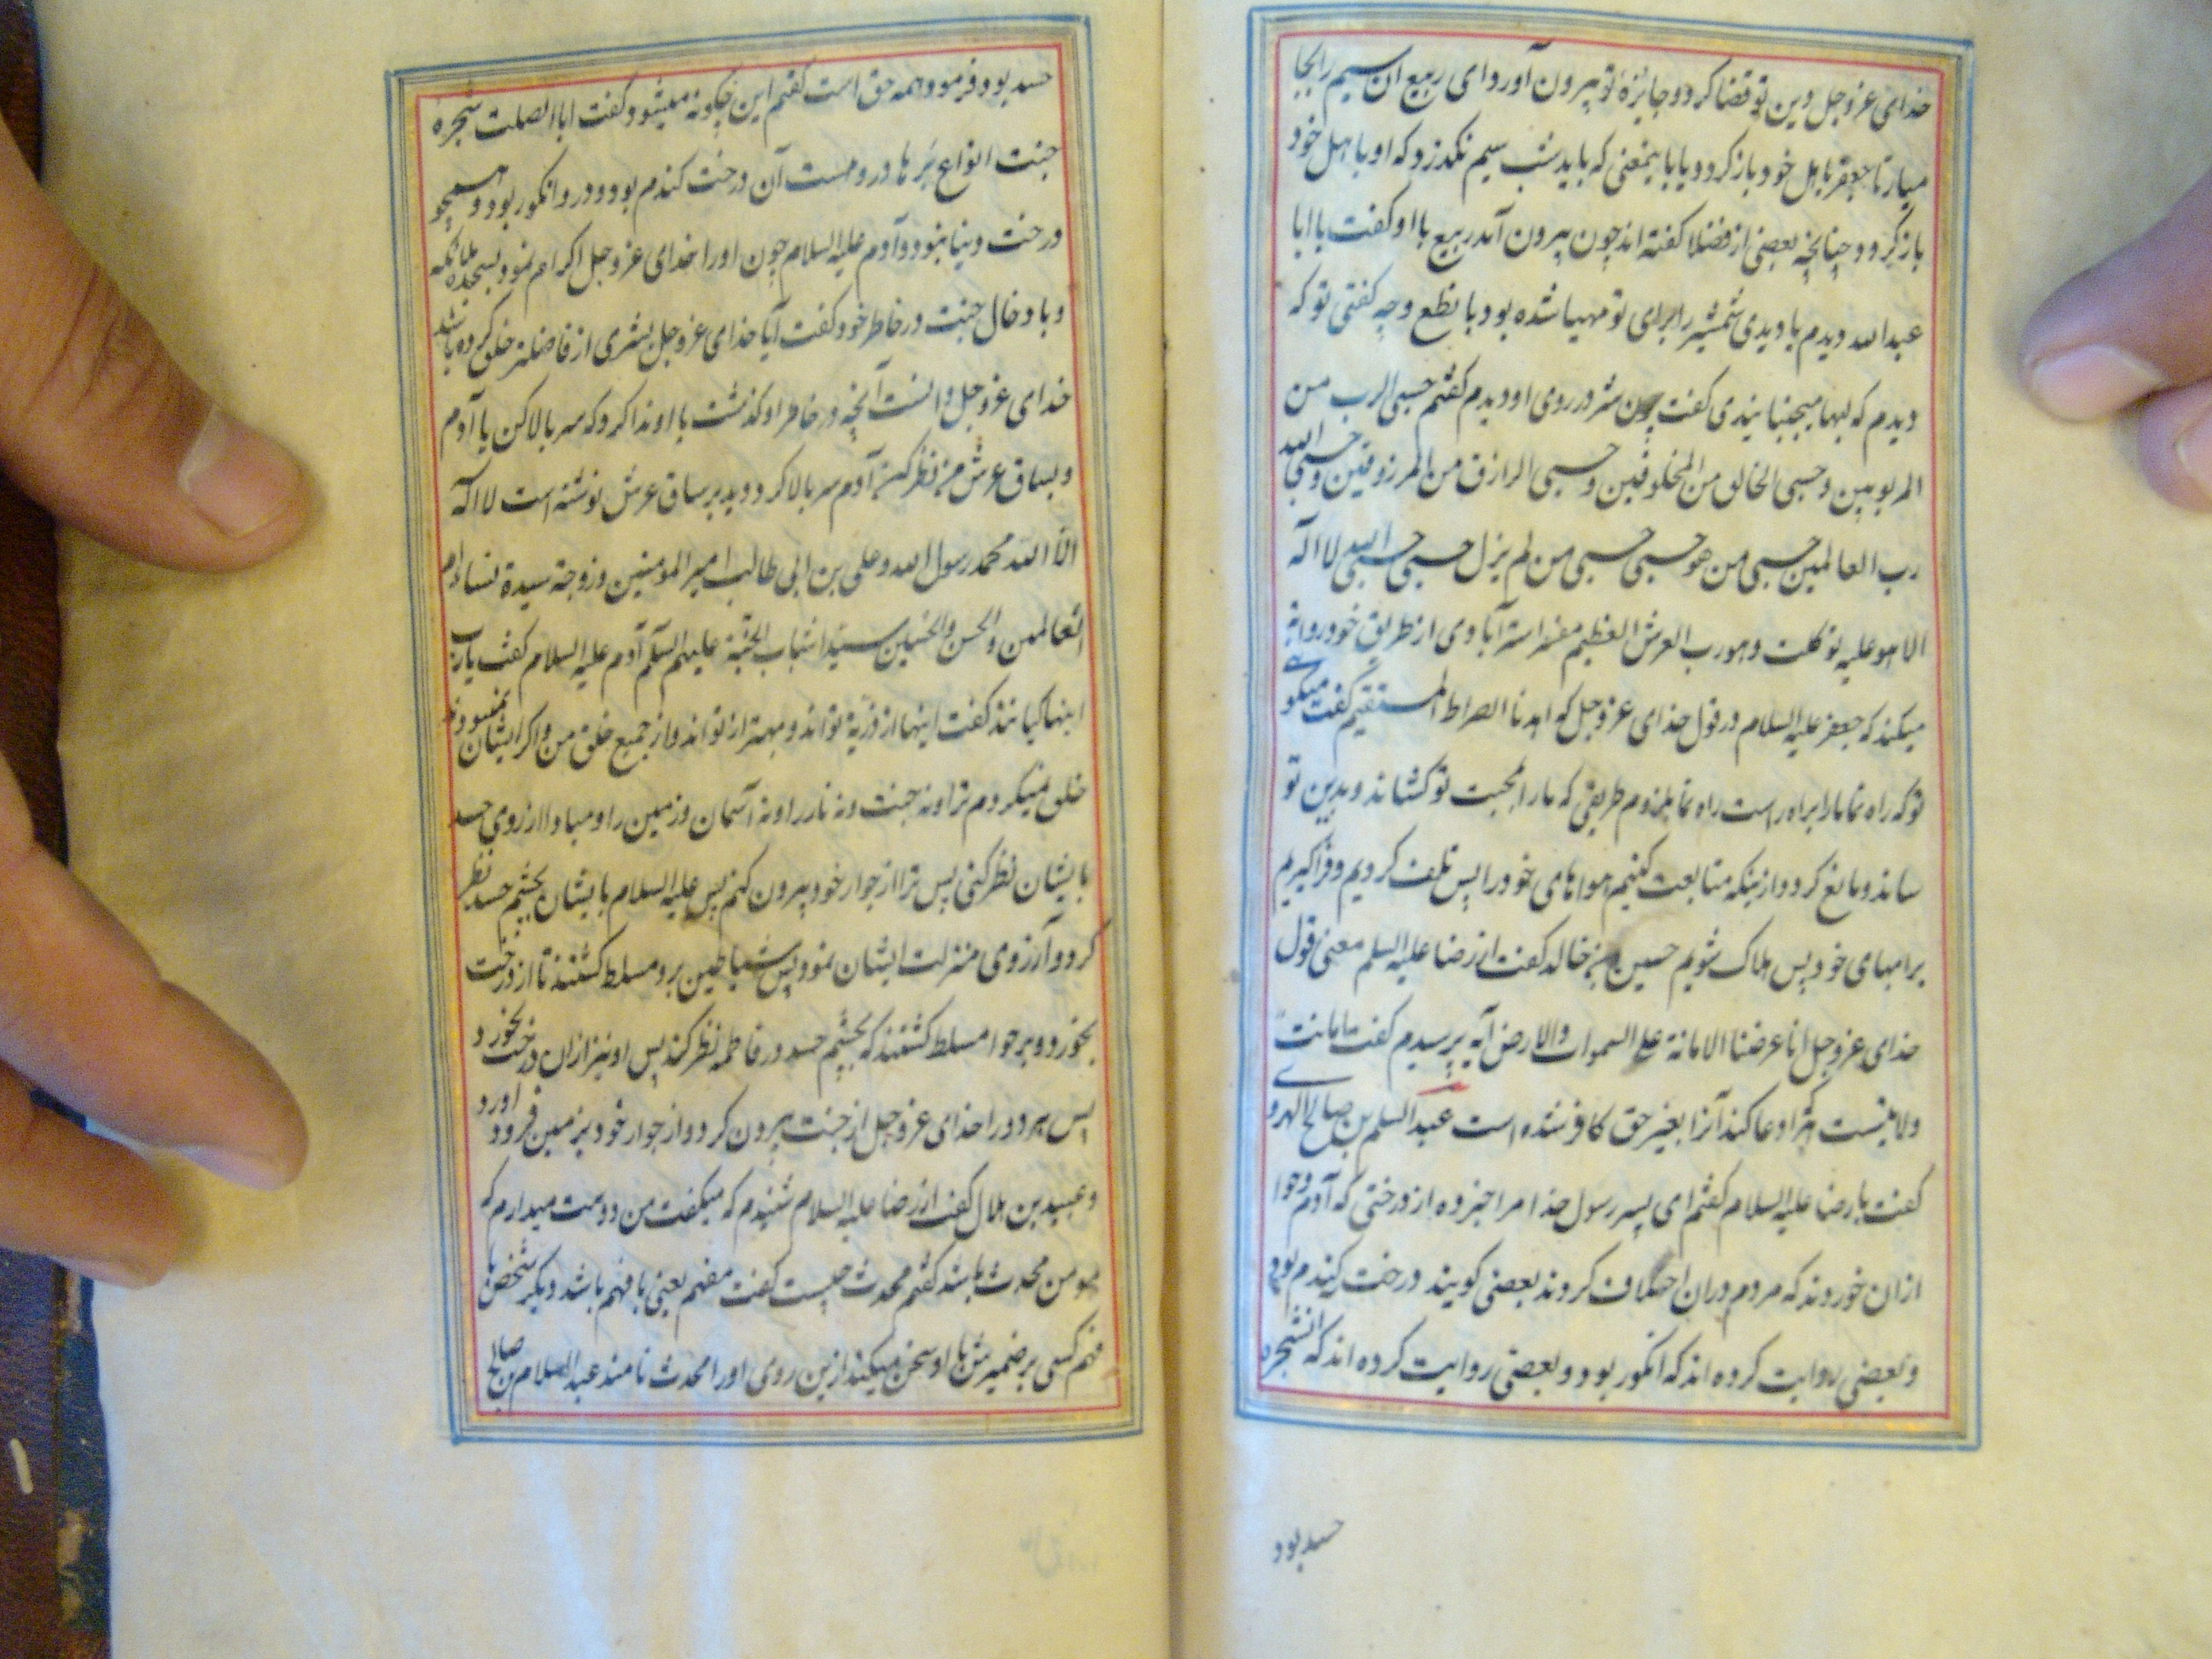 خدای عزوجل دین تو قضا کرد و جایزهٔ تو بیرون آورد ای ربیع ان سیم را بجا
میار تا جعفر باهل خود باز کردد یا بابیمعنی که باید شب سیم نکذرد که او با اهل خود
باز کردد چنانچه بعضی از فضلا کفته اند چون بیرون آمد ربیع باو کفت یا ابا
عبد الله دیدم یا دیدی شمشیر را برای تو مهیا شده بود با نطع و چه کفتی تو که
دیدم که لبها میجنبانیدی کفت چون شر در روی او دیدم کفتم حسبی الرب من
المربوبین و حسبی الخالق من المخلوقین و حسبی الرازق من المرزوقین و حسبی الله
رب العالمین حسبی من هو حسبی حسبی من لم یزل حسبی حسبی الله لا اله
الا هو علیه توکلت و هو رب العرش العظیم مفسر استرآبادی از طریق خود روایة
میکند که جعفر علیه السلام در قول خدای عزوجل که اهدنا الصراط المستقیم کفت میکوی
تو که راه نما ما را براه راست راه نما بلزوم طریقی که ما را بمحبت تو کشاند و بدین تو
ساند و مانع کردد از ینکه متابعت کنیم هواهای خود را پس تلف کردیم و فراکیریم
برایهای خود پس هلاک شویم حسین بن خالد کفت از رضا علیه السلم معنی قول
خدای عزوجل انا عرضنا الامانة علی السموات والارض آیه پرسیدم کفت امانت
ولایتست هرکرا دعا کند آنرا بغیر حق کافر شده است عبد السلم بن صالح الهروی
کفت با رضا علیه السلام کفتم ای پسر رسول خدا مرا خبر ده از درختی که آدم و حوا
ازان خوردند که مردم دران اختلاف کردند بعضی کویند درخت کندم بود
و بعضی روایت کرده اند که انکور بود و بعضی روایت کرده اند که انشجره
حسد بود
حسد بود فرمود همه حق است کفتم این چکونه میشود کفت ابا الصلت شجرهٔ
جنت انواع بر ها درو هست آن درخت کندم بود و درو انکور بود و همچو
درخت دنیا نبود و آدم علیه السلام چون او را خدای عزوجل اکرام نمود بسجدهٔ ملائکه
و بادخال جنت در خاطر خود کفت آیا خدای عزوجل بشری از من فاضلتر خلق کرده باشد
خدای عزوجل دانست آنچه در خاطر او کذشت باو ندا کرد که سر بالا کن یا آدم
و بساق عرش من نظر کن آدم سر بالا کرد و دید بر ساق عرش نوشته است لا اله
الا الله محمد رسول الله و علی بن ابی طالب امیر المومنین و زوجته سیدة نساء
العالمین والحسن والحسین سیدا شباب الجنة علیهم السلم آدم علیه السلام کفت یا رب
اینها کیانند کفت اینها از ذریة تواند و بهتر از تواند و از جمیع خلق من و اکر ایشان نمیبودند
خلق نمیکردم ترا و نه جنت و نه نار را و نه آسمان و زمین را و مبادا از روی حسد
بایشان نظر کنی پس ترا از جوار خود بیرون کنم پس علیه السلام بایشان بچشم حسد نظر
کرد و آرزوی منزلت ایشان نمود پس شیاطین برو مسلط کشتند تا از درخت
بخورد و بر حوا مسلط کشتند که بچشم حسد در فاطمه نظر کند پس او نیز ازان درخت بخورد
پس هر دو را خدای عزوجل از جنت بیرون کرد و از جوار خود بر زمین فرود آورد
و عبید بن هلال کفت از رضا علیه السلام شنیدم که میکفت من دوست میدارم که
مومن محدث باشد کفتم محدث چیست کفت مفهم یعنی با فهم باشد دیکر شخص با
فهم کسی بر ضمیرش با او سخن میکند ازین روی او را محدث نامند عبد السلام بن صالح